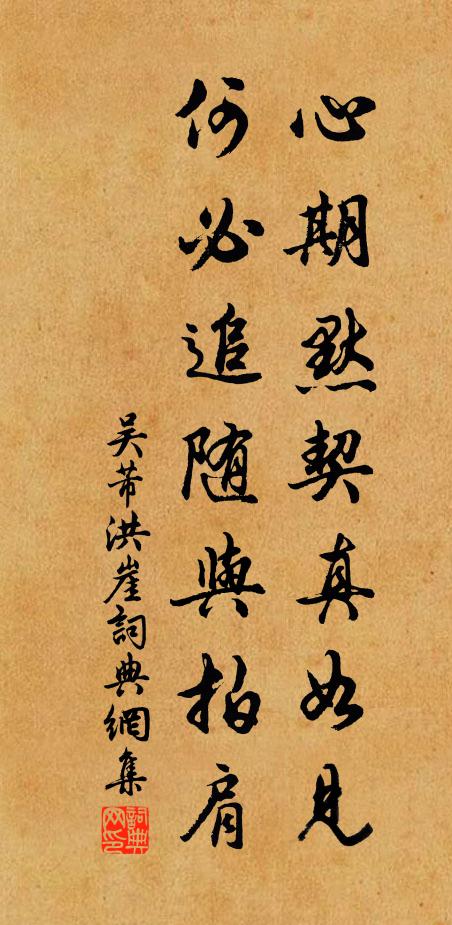 心期默契真如見
何必追随與拍肩
吴芾洪崖詞典網集
詞典网印